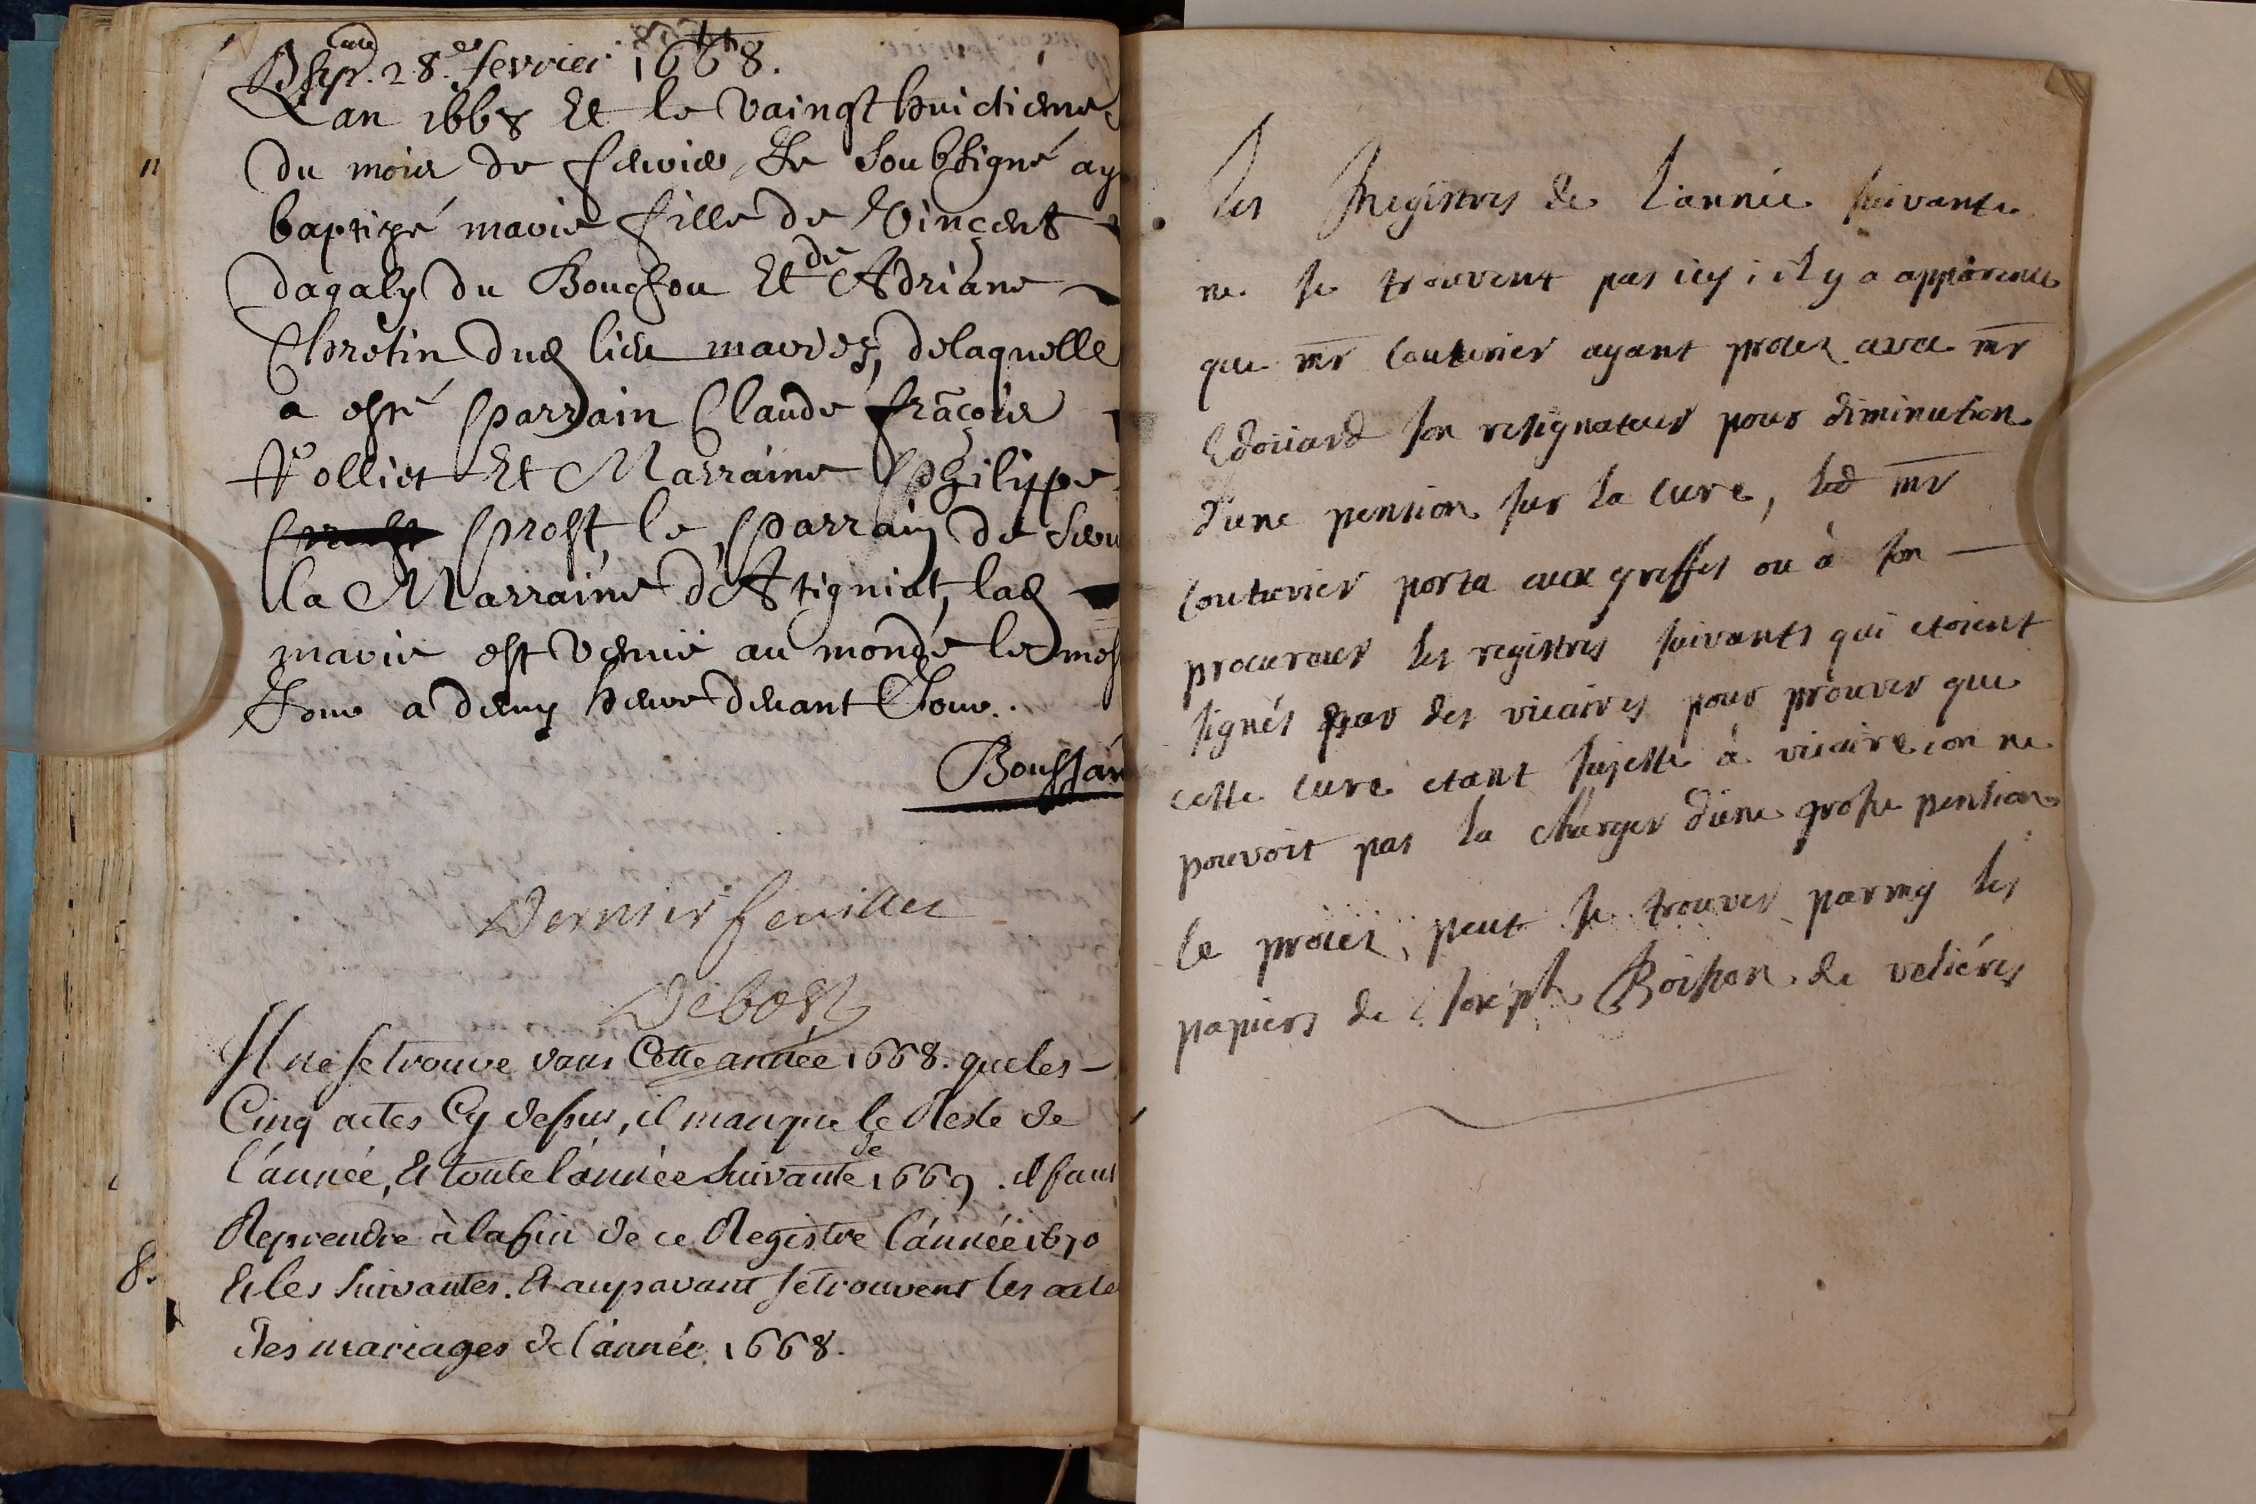 Bapt. 28e. fevrier 1668.
L'an 1668 Et le vaingthuictiéme
du mois de fevrier Je Soubsigné ay
baptizé marie fille de Vinçent
dagaly du Bouchou Et de Adriane
Chretin dud lieu mariez, delaquelle
a esté parrain Claude frãçois
Volliet Et Marraine philippe
prost, le parrain de
la Marraine d'Atigniat, lad
marie est venüe au monde led mes
Jour a demy heure devant Jour.
Boussan
Dernier feuillet
Debost
Il ne se trouve dans Cette année 1668. que les
Cinq actes Cy dessus, il manque le Reste de
l'année, Et toute l'année suivante de 1669. il faut
Reprendre à la fin de ce Registre l'année 1670
Et les suivantes. Et auparavant se trouvent les acte
des mariages de l'année 1668.
Les Registres de l'année suivante
ne se trouvent pas icy ; il y a apparence
que mr Couturier ayant procez avec mr
Edoüard son resignateur pour diminution
d'une pension sur la cure, led mr
Couturier porta aux greffes ou à son
procureur les registres suivants qui etoient
signés par des vicaires pour prouver que
cette cure etant sujette à vicaire on ne
pouvoit pas la charger d'une grosse pension
le procez peut se trouver parmy les
papiers de Joseph Boisson de